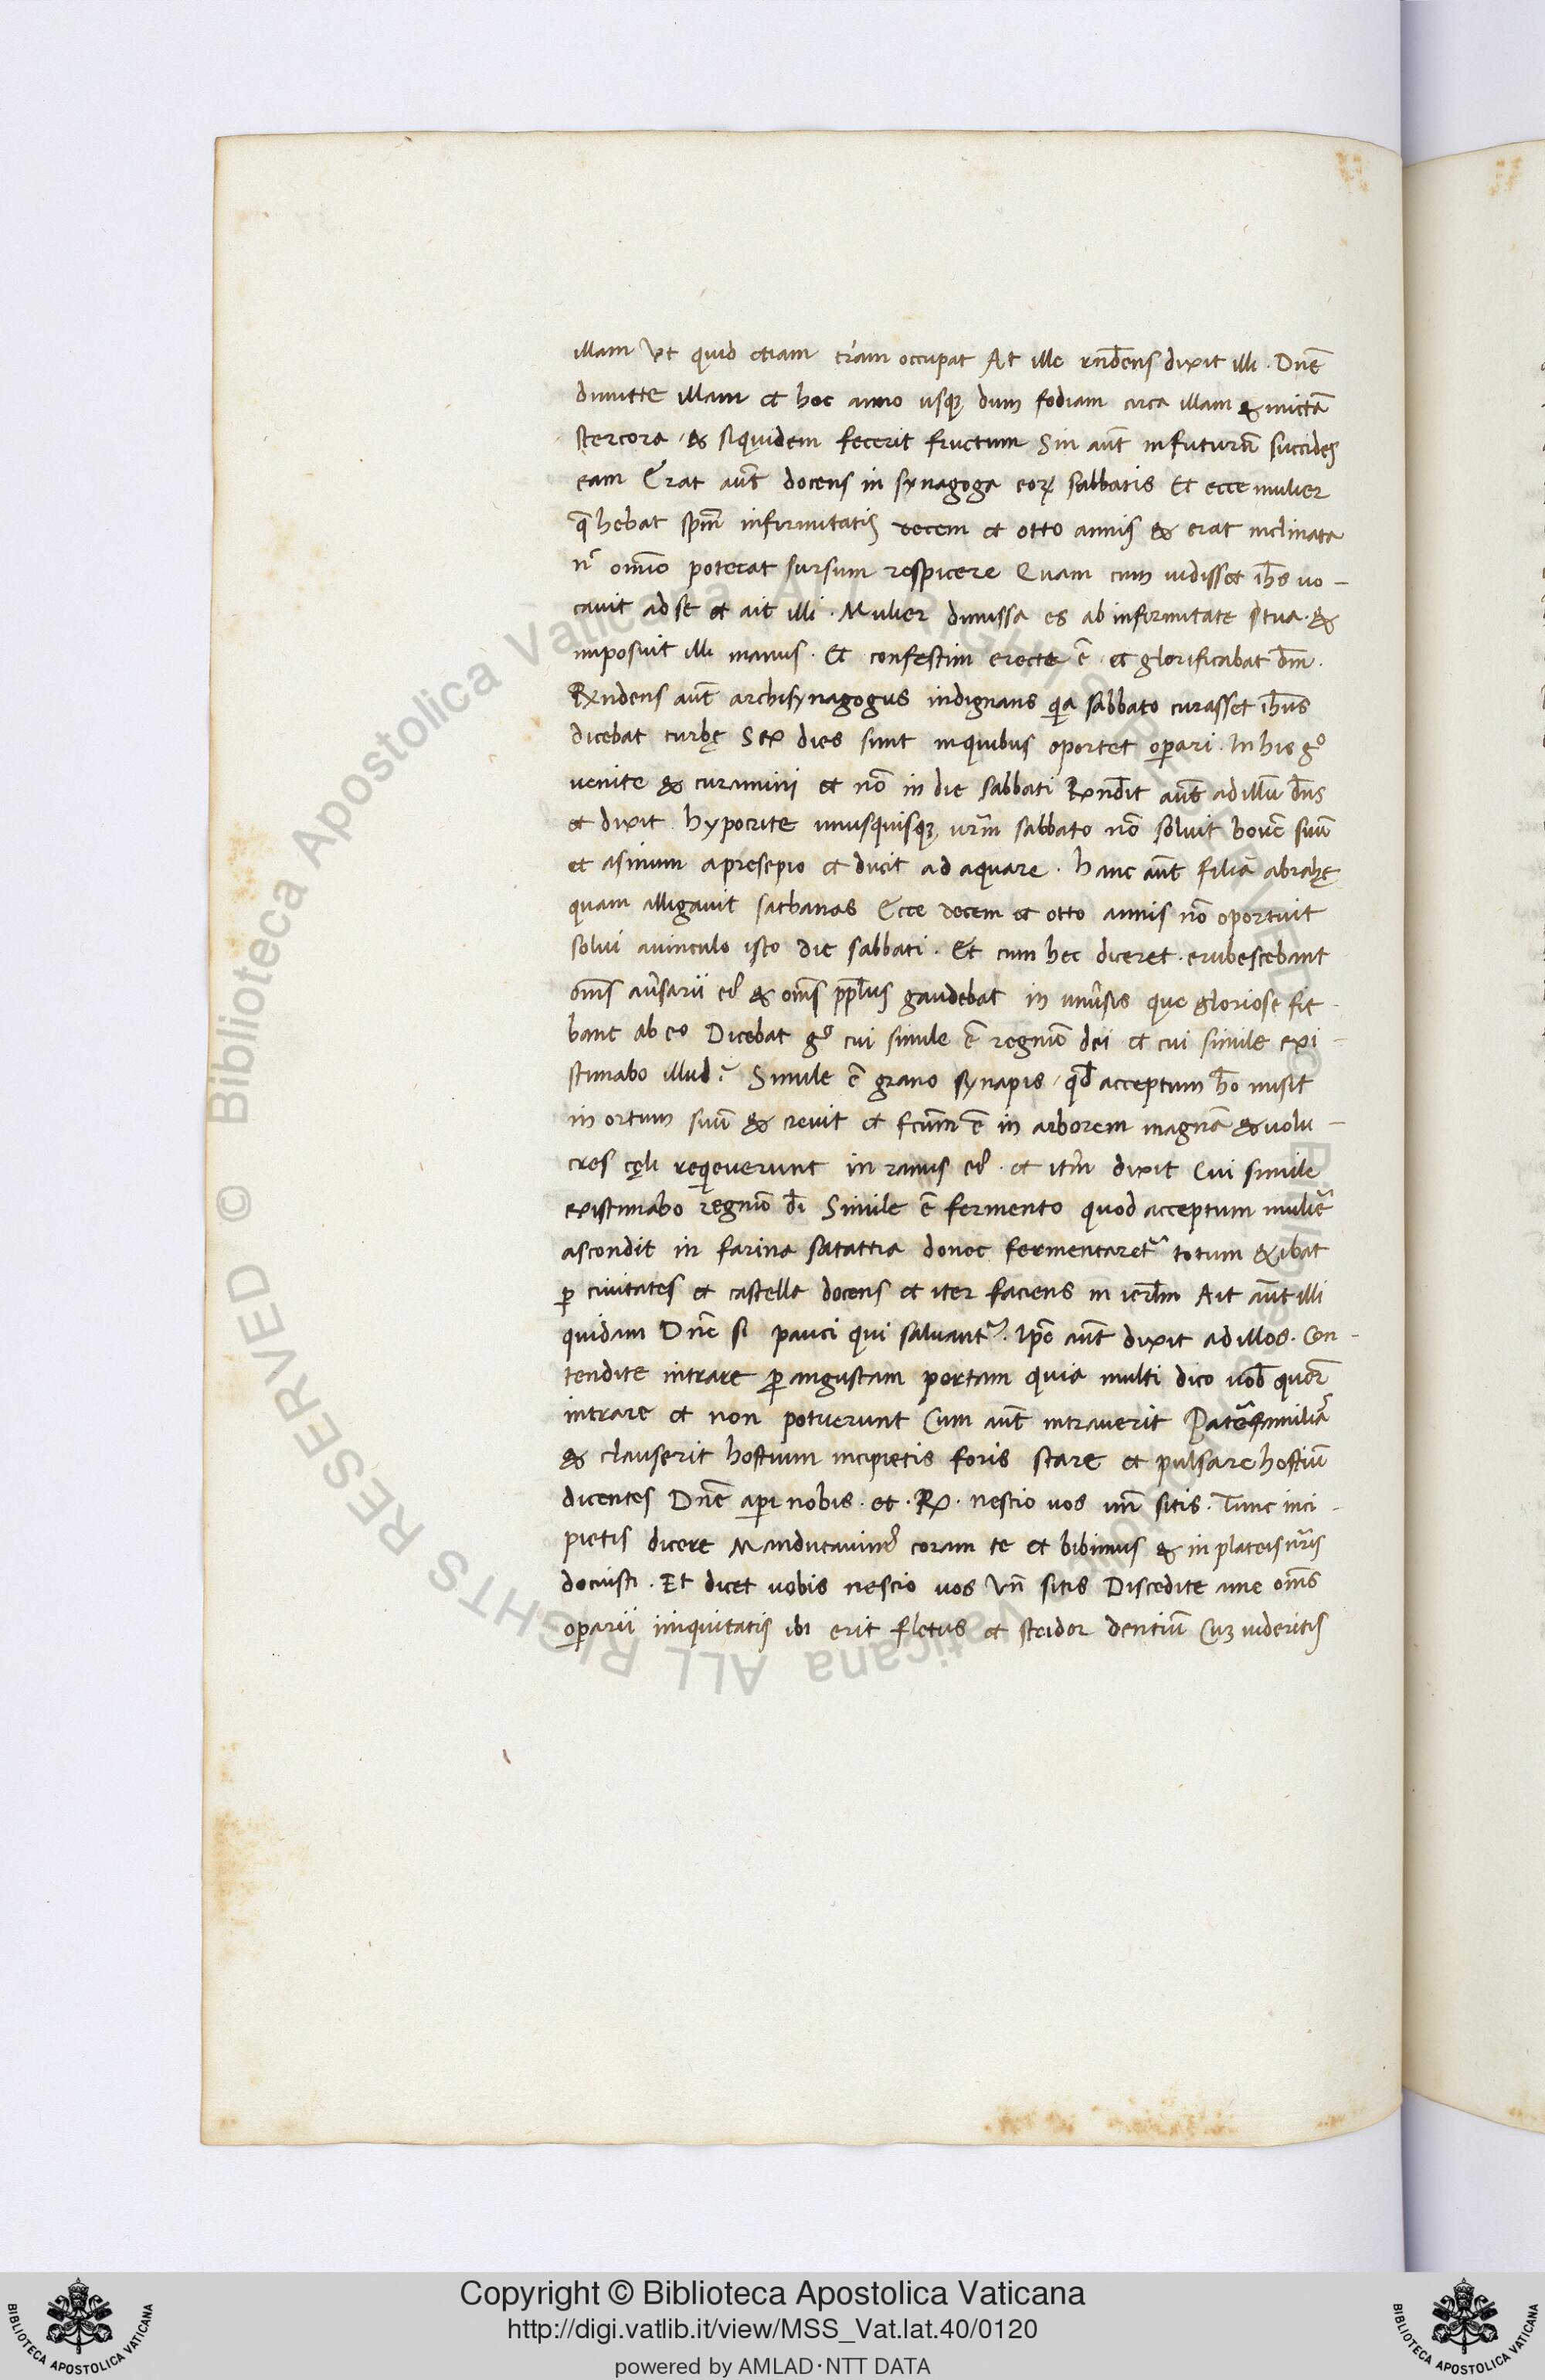 illam Vt quid etiam tr̃am occupat At ille rñdens dixit illi . Dñe
dimitte illam et hoc anno usq; dum fodiam circa illam & mictã
stercora & siquidem fecerit fructum Sin aũt in futurũ succides
eam Erat aũt docens in synagoga eoꝝ sabbatis Et ecce mulier
q̃ hebat sp̃m infirmitatis decem et otto annis & erat inclinata
n̄ om̃io poterat sursum respicere Quam cum uidisset ih̃s uo-
cauit ad se et ait illi . Mulier dimissa es ab infirmitate tua . &
imposuit illi manus . Et confestim erecta ẽ et glorificabat dm̃ .
Rx̃ndens aũt archisynagogus indignans qia sabbato curasset ih̃us
dicebat turbę Sex dies sunt in quibus oportet oꝑari . In his gͦ
uenite & curamini et nõ in die sabbati Rx̃ndit aũt ad illũ dñs
et dixit hypocrite unusquisq; ur̃m sabbato nõ soluit bouẽ suũ
et asinum a presepio et ducit ad aquare . hanc aũt filiã abrahę
quam alligauit sathanas Ecce decem et otto annis nõ oportuit
solui a uinculo isto die sabbati . Et cum hec diceret . erubescebant
om̃s aũsarii eꝰ & om̃s pp̃lus gaudebat in uniũsis que gloriose fie-
bant ab eo Dicebat gͦ cui simile ẽ regnũ dei et cui simile exi-
stimabo illud ? Simile ẽ grano synapis qd̃ acceptum hõ misit
in ortum suũ & creuit et fcũm ẽ in arborem magnã & uolu-
cres cęli requeuerunt in ramis eꝰ . et itm̃ dixit Cui simile
existimabo regnũ dĩ Simile ẽ fermento quod acceptum muliẽ
ascondit in farina satattia donec fermentaret᷑ totum & ibat
ꝑ ciuitates et castella docens et iter faciens in ierlm̃ Ait aũt illi
quidam Dñe si pauci qui saluant᷑ . Ipẽ aũt dixit ad illos . Con-
tendite intrare ꝑ angustam portam quia multi dico uob̃ quẽr
intrare et non potuerunt Cum aũt intrauerit Paterfamiliã
& clauserit hostium incipietis foris stare et pulsare hostiũ
dicentes Dñe aꝑi nobis . et . Rx . nescio uos un̄ sitis . Tunc inci-
pietis dicere Manducauimꝰ coram te et bibimus & in plateis nr̃is
docuisti . Et dicet uobis nescio uos Vn̄ sitis Discedite a me om̃s
oꝑarii iniquitatis ibi erit fletus et stridor dentiũ Cuꝫ uideritis
© Biblioteca Apostolica Vaticana ALL RIGHTS RESERVED
© Biblioteca Apostolica Vaticana ALL RIGHTS RESERVED
BIBLIOTECA APOSTOLICA VATICANA
Copyright © Biblioteca Apostolica Vaticana
http://digi.vatlib.it/view/MSS_Vat.lat.40/0120
powered by AMLAD·NTT DATA
BIBLIOTECA APOSTOLICA VATICANA